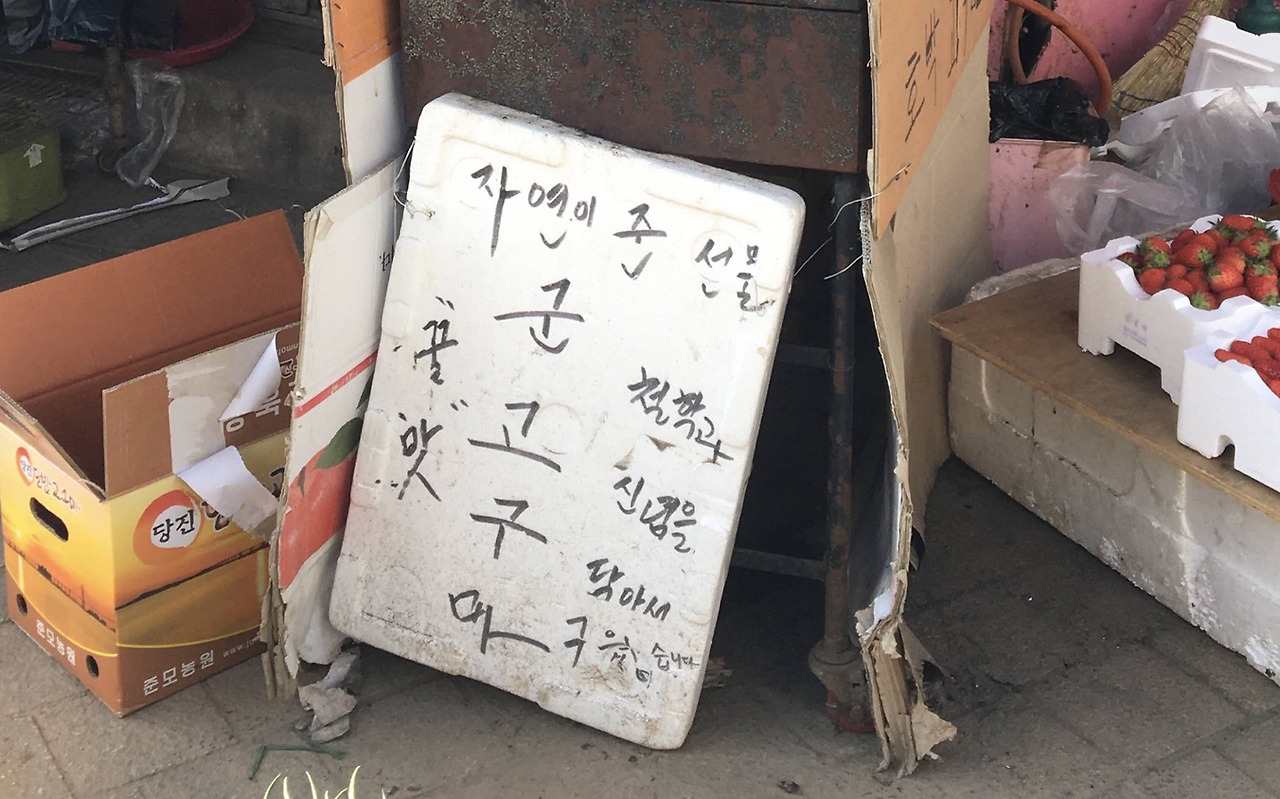 자연이 준 선물
군
고
구
마
"꿀
맛"
철학과
신념을
담아서
구웠습니다
호박
당진
준모농원
준모농원